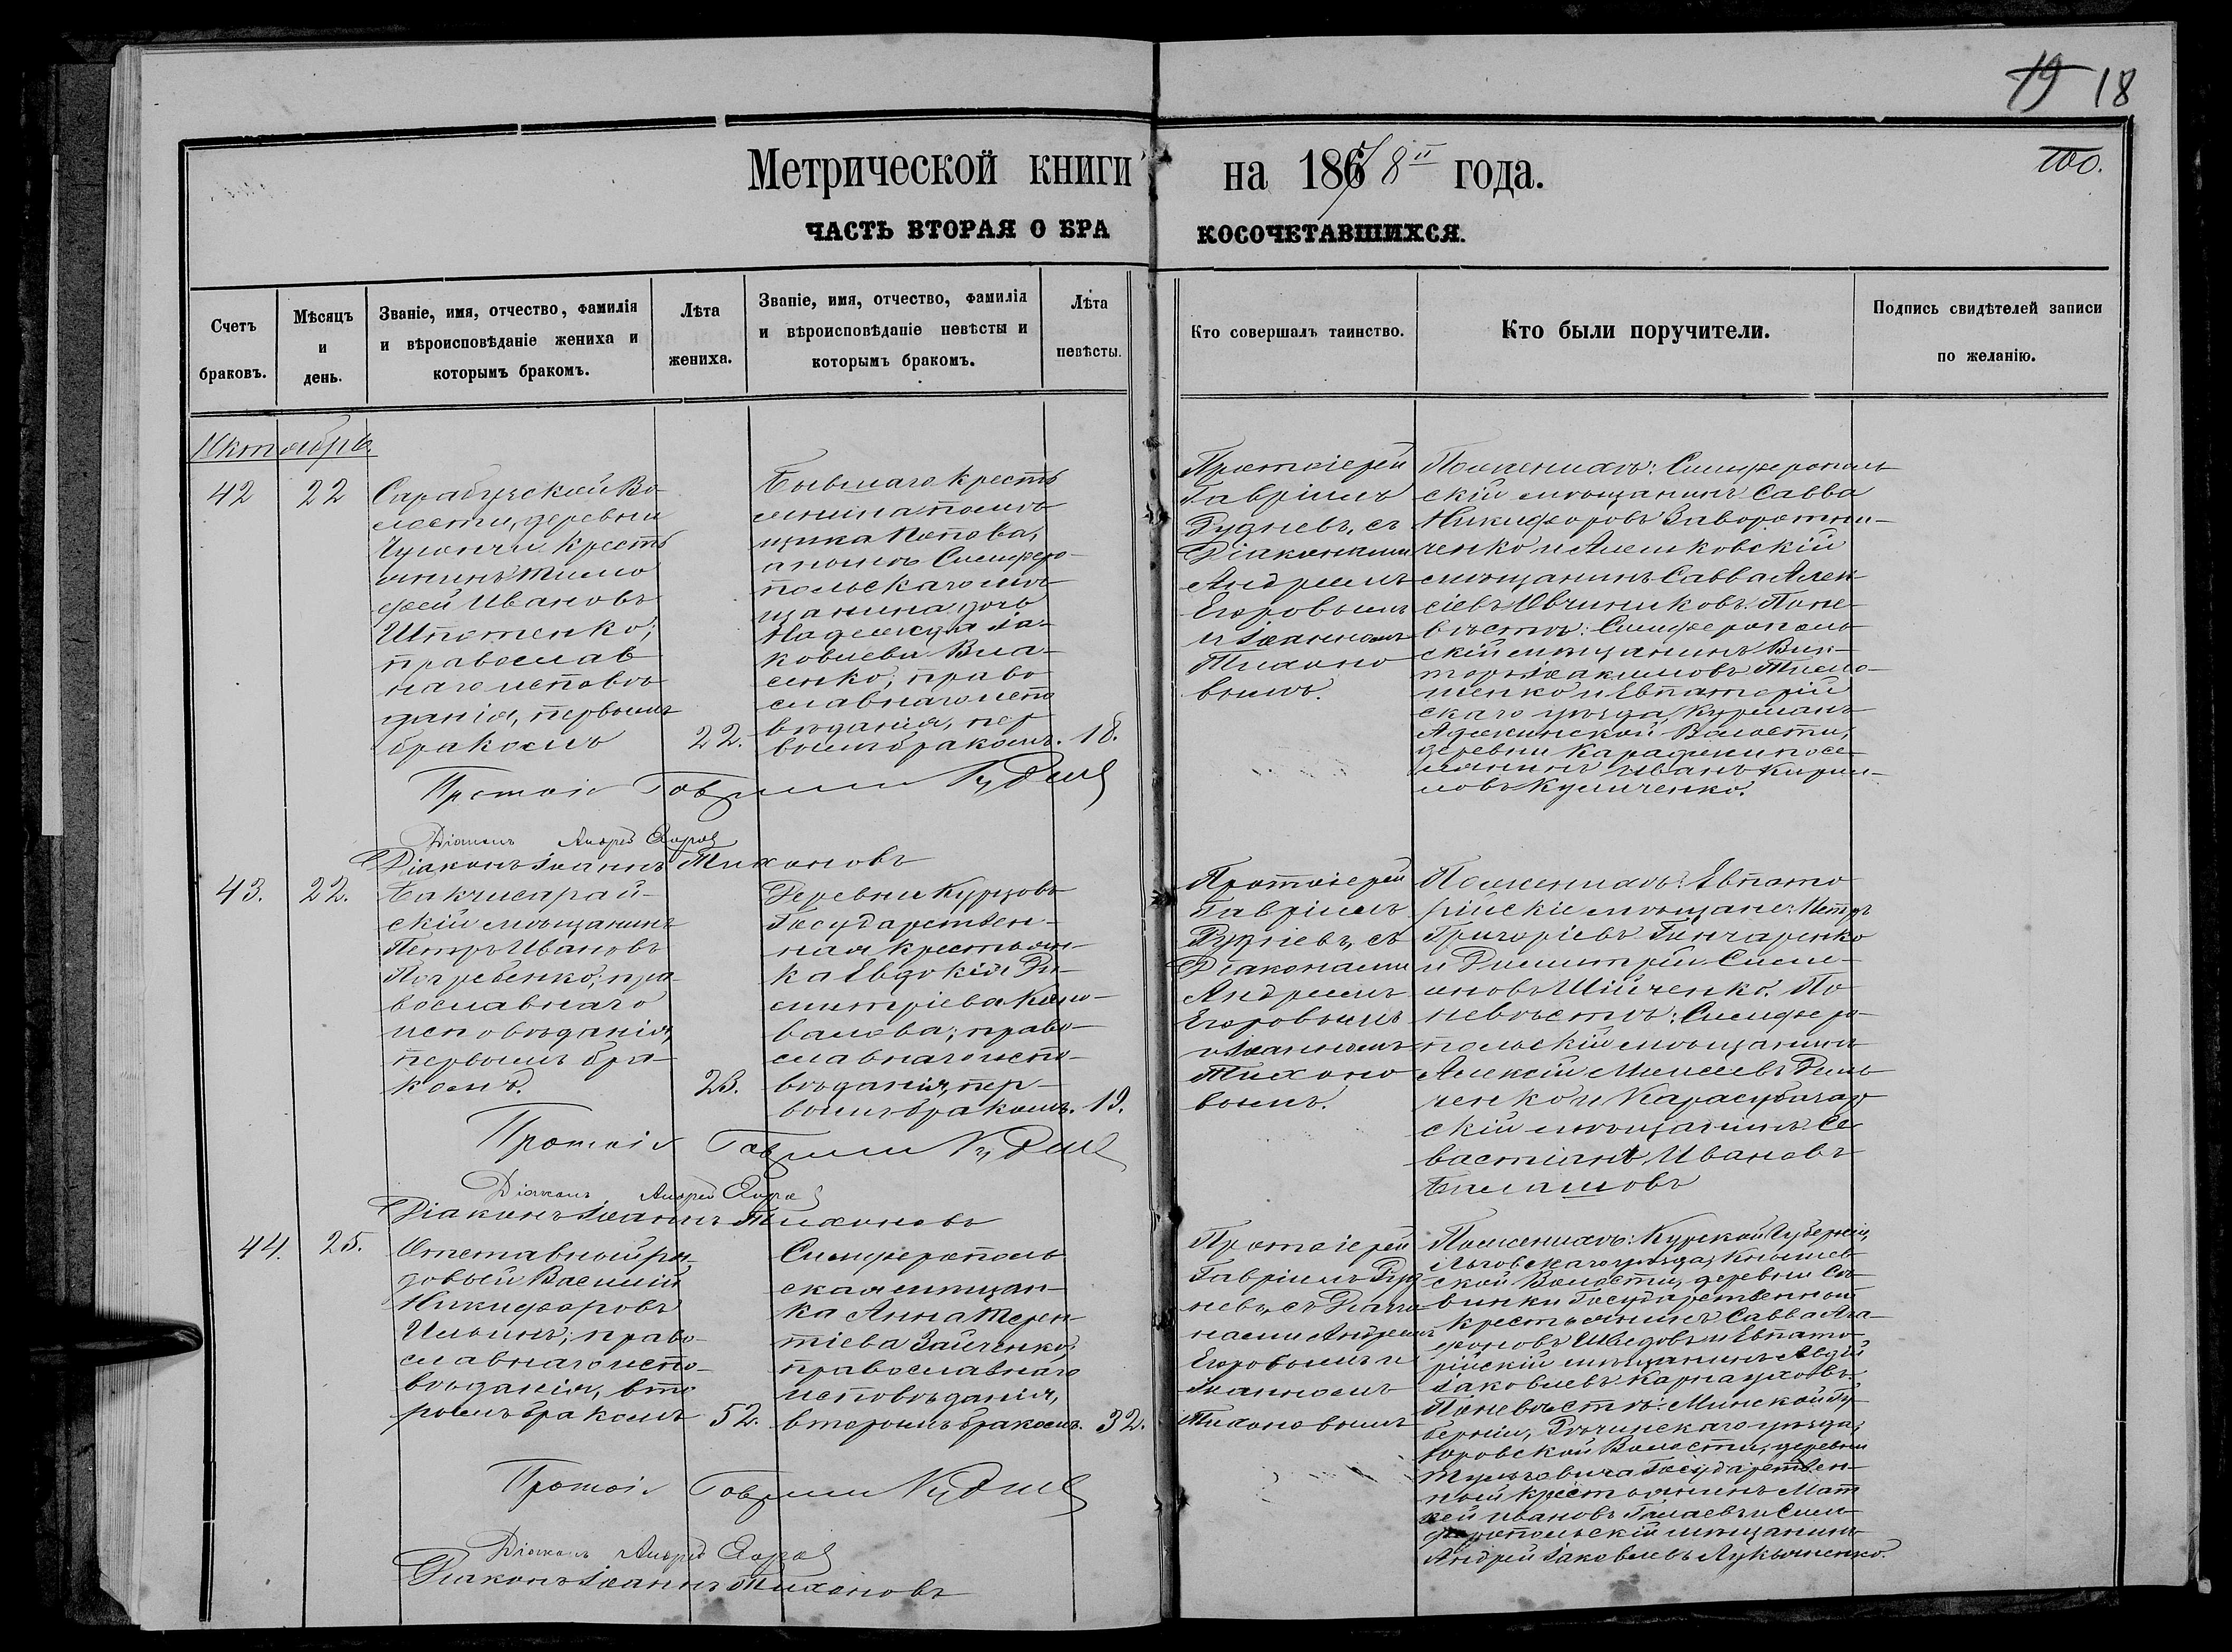 19 18
100.
Метрической книги на 1868 года.
ЧАСТЬ ВТОРАЯ О БРАКОСОЧЕТАВШИХСЯ.
Счетъ браковъ.
Мѣсяцъ и день.
Званіе, имя, отчество, фамилія
и вѣроисповѣданіе жениха и
которымъ бракомъ.
Лѣта жениха.
Званіе, имя, отчество, фамилія
и вѣроисповѣданіе невѣсты и
которымъ бракомъ.
Лѣта невѣсты.
Кто совершалъ таинство.
Кто были поручители.
Подпись свидѣтелей записи
по желанію.
Октябрь.
42
22
Сарабузской Во-
лости, деревни
кресть
янинъ Тимо
фей Ивановъ
Ипотенко;
православ
наго исповѣ
данія, первымъ
бракомъ
22.
Бывшаго кресть
янина помѣ
щика Попова,
а нынѣ Симферо-
польскаго мѣ
щанина, дочь
Надежда Іа-
ковлева Вла-
сенко; право
славнаго испо
вѣданія, пер
вымъ бракомъ.
18.
Протоіерей
Гавріилъ
Рудневъ, съ
Діаконами
Андреемъ
Егоровымъ
и Іоанномъ
Тихоно
вымъ.
По женихѣ: Симферополь
скій мѣщанинъ Савва
Никифоровъ Заворотни-
ченко и Алешковскій
мѣщанинъ Савва Алек
сіевъ Овчиниковъ. По не-
вѣстѣ: Симферополь
скій мѣщанинъ Вик-
торъ Іакимовъ Тимо-
шенко и Евпаторій
скаго уѣзда, Курманъ
Аджинской Волости,
деревни Караджи посе
лянинъ Иванъ Кирил-
ловъ Куличенко.
Протоіе Гавріилъ Рудневъ
Діаконъ Андрей Егоровъ
Діаконъ Іоаннъ Тихоновъ
43.
22.
Бакчисарай-
скій мѣщанинъ
Петръ Ивановъ
Погребенко; пра-
вославнаго
исповѣданія,
первымъ бра-
комъ.
23.
Деревни Курцовъ
Государствен-
ная крестьян-
ка Евдокія Ди-
митріева Коно-
валова; право-
славнаго испо-
вѣданія, пер-
вымъ бракомъ.
19.
Протоіерей
Гавріилъ
Рудневъ, съ
Діаконами
Андреемъ
Егоровымъ
и Іоанномъ
Тихоно
вымъ.
По женихѣ: Евпато
рійскіе мѣщане: Петръ
Григоріевъ Гончаренко
и Димитрій Симе-
оновъ Шійченко. По
невѣстѣ: Симферо-
польскій мѣщанинъ
Алексій
ченко и Карасубазар
скій мѣщанинъ Се
вастіанъ Ивановъ
Балашовъ
Протоіе Гавріилъ Рудневъ
Діаконъ Андрей Егоровъ
Діаконъ Іоаннъ Тихоновъ
44.
25.
Отставный ря-
довый Василій
Никифоровъ
Ильинъ; право-
славнаго испо-
вѣданія, вто
рымъ бракомъ
52.
Симферополь
ская мѣщан-
ка Анна Терен
тіева Зайченко;
православнаго
исповѣданія,
вторымъ бракомъ.
32.
Протоіерей
Гавріилъ Руд
невъ, съ Діако
нами Андреемъ
Егоровымъ и
Іоанномъ
Тихоновымъ
По женихѣ: Курской Губерніи,
Льговскаго уѣзда,
ской Волости, деревни
Государственный
крестьянинъ Савва Ага-
фоновъ Шведовъ и Евпато-
рійскій мѣщанинъ Авдѣй
Іаковлевъ Карнауховъ.
По невѣстѣ: Минской Гу-
берніи, Рѣчицкаго уѣзда,
Юровской Волости, деревни
Тульговича Государствен-
ный крестьянинъ Мат
ѳей Ивановъ Галаевъ и Сим-
феропольскій мѣщанинъ
Андрей Іаковлевъ Лукьяненко.
Протоіе Гавріилъ Рудневъ
Діаконъ Андрей Егоровъ
Діаконъ Іоаннъ Тихоновъ